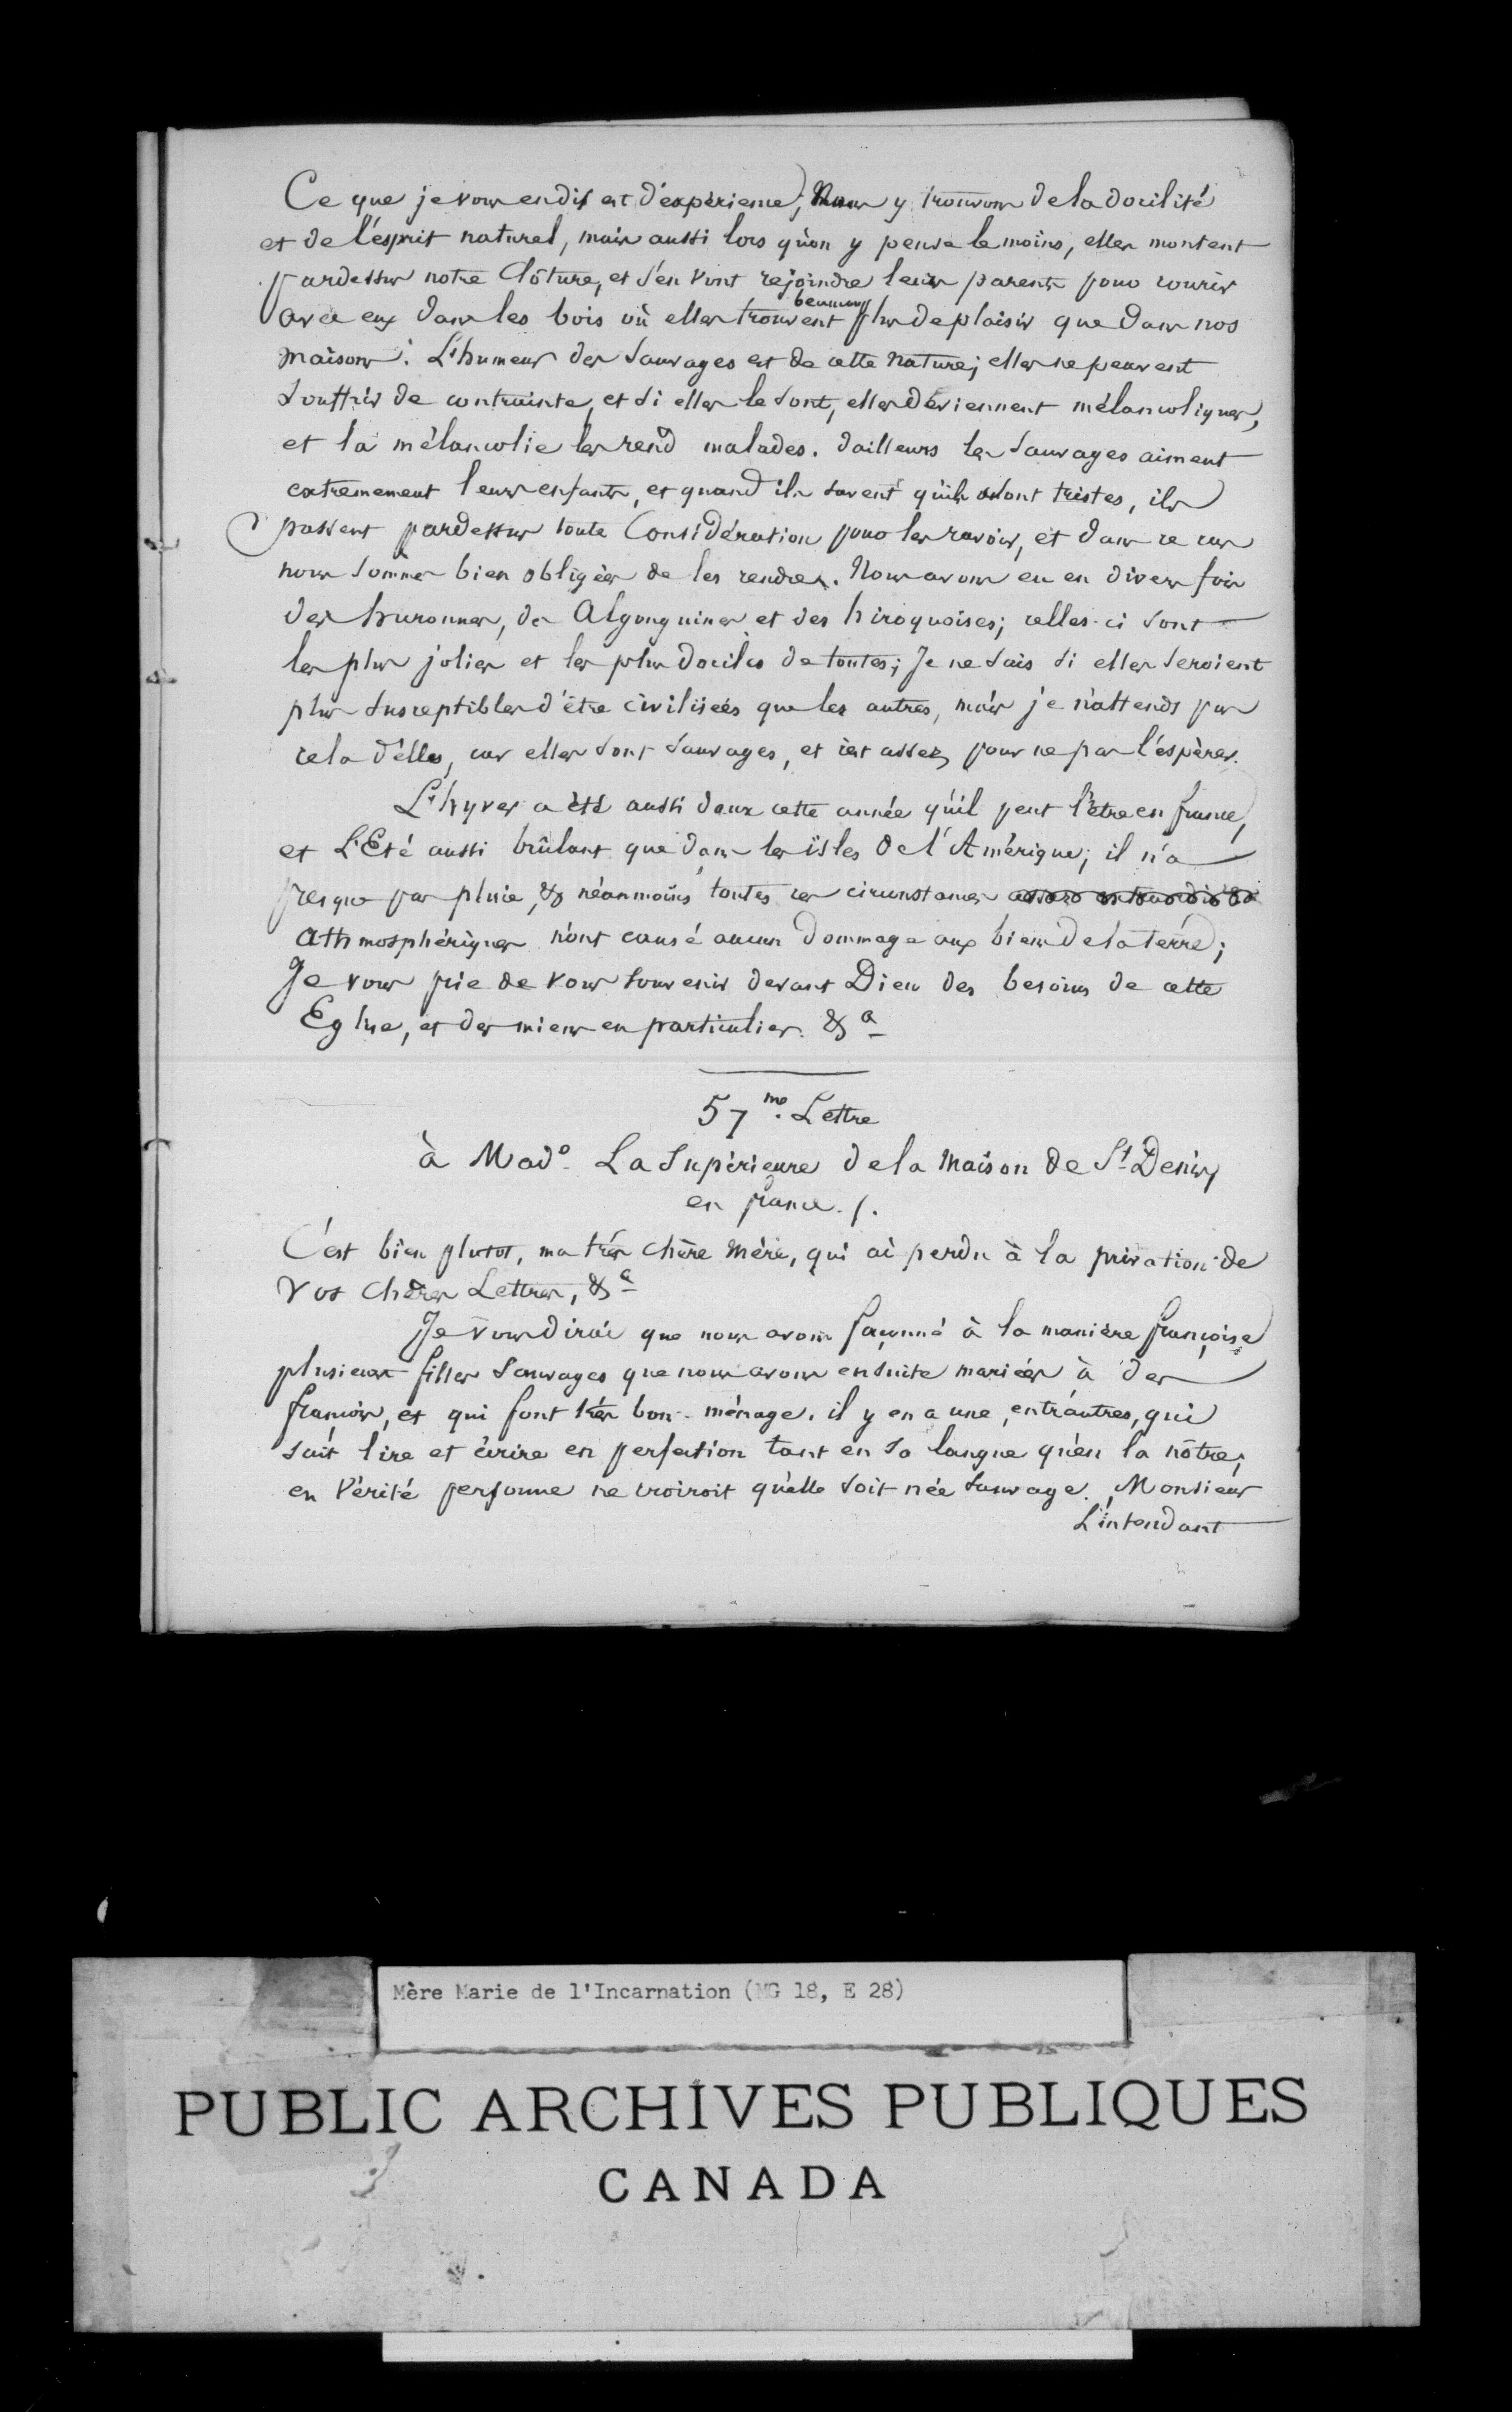 Ce que je vous en dis est d'expérience; Nous y trouvons de la docilité
et de l'esprit naturel, mais aussi lors qu'on y pense le moins, elles montent
pardessus notre Clôture, et s'en vont rejoindre leurs parents pour courir
beaucoup
avec eux dans les bois où elles trouvent plus de plaisir que dans nos
maisons. L'humeur des Sauvages est de cette nature; elles ne peuvent
souffrir de contrainte, et si elles le sont, elles déviennent mélancoliques,
et la mélancolie les rend malades. d'ailleurs les Sauvages aiment
extremement leurs enfants, et quand ils savent qu'ils sont tristes, ils
passent pardessus toute Considération pour les ravoir, et dans ce cas
nous sommes bien obligées de les rendre. Nous avons eu en divers fois
des huronnes, des Algonquines et des hiroquoises; celles-ci sont
les plus jolies et les plus dociles de toutes; Je ne sais si elles seroient
plus susceptibles d'être civilisées que les autres, mais je n'attends pas
cela d'elles, car elles sont Sauvages, et c'est assez pour ne pas l'espèrer.
L'hyver a été aussi doux cette année qu'il peut l'être en france,
et L'Eté aussi brûlant que dans les isles de l'Amérique; il n'a
presque pas pluie, & néanmoins toutes ces circonstances
Athmosphériques n'ont causé aucun dommage aux biens de la terre;
Je vous prie de vous souvenir devant Dieu des besoins de cette
Eglise, et des miens en particulier. &a
57me. Lettre
à Made. La Supérieure de la Maison de St. Denis
en france.
C'est bien plutot, ma très chère mère, qui ai perdu à la privation de
Vos chères Lettres, &a
Je vous dirai que nous avons façonné à la manière françoise
plusieurs filles Sauvages que nous avons ensuite mariées à des
françois, et qui font très bon-ménage. il y en a une, entr'autres, qui
sait lire et écrire en perfection tant en sa langue qu'en la nôtre,
en vérité personne ne croiroit qu'elle soit née Sauvage. Monsieur
L'intendant
Mère Marie de l'Incarnation (MG 18, E 28)
PUBLIC ARCHIVES PUBLIQUES
CANADA